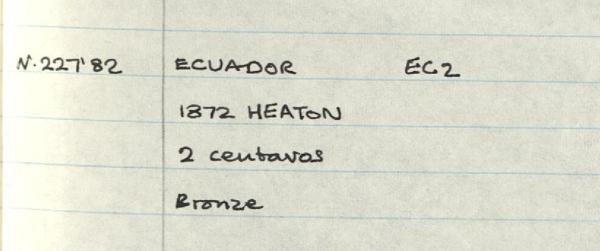 N.227'82 ECUADOR EC2
1872 HEATON
2 centavos
Bronze